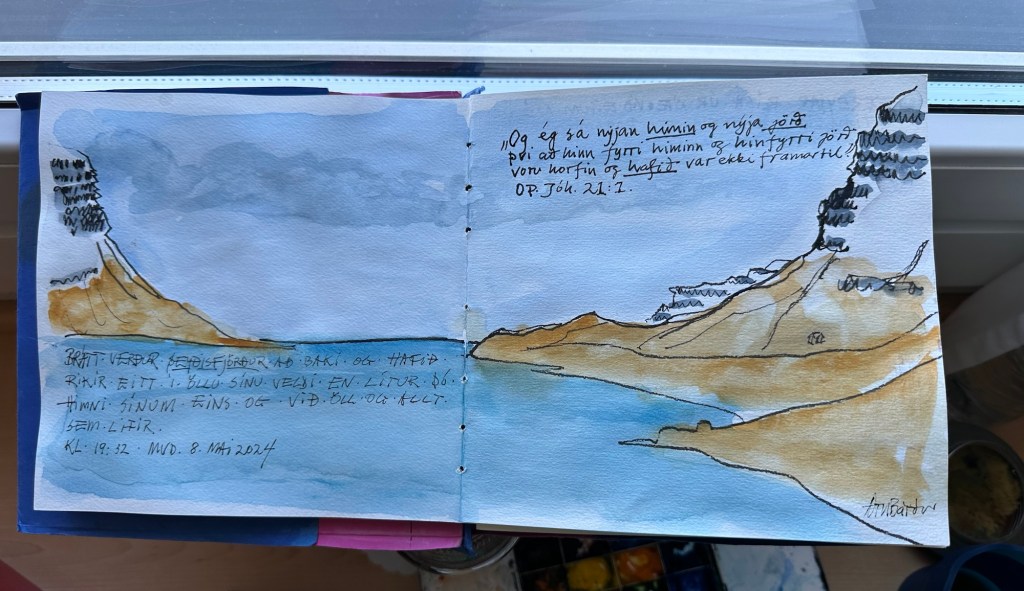 BRÁTT · VERÐUR SEYÐISFJÖRÐUR AÐ BAKI · OG HAFIÐ ·
RÍKIR · EITT · Í · ÖLLU · SÍNU · VELDI · EN · LÍTUR · ÞÓ ·
HIMNI · SÍNUM · EINS · OG · VIÐ · ÖLL · OG · ALLT ·
SEM · LIFIR ·
KL · 19:32 · MVD · 8 · MAÍ 2024
„Og ég sá nýjan himin og nýja jörð
því að hinn fyrri himinn og hin fyrri jörð
voru horfin og hafið var ekki framar til."
OP. Jóh. 21:1.